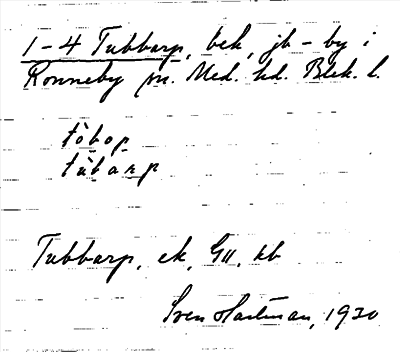 1-4 Tubbarp, bek, jb-by i
Ronneby sn. Med. hd. Blek. l.
tòbop
tùbarp
Tubbarp, ek, GU, kb
Sven Hartman, 1930